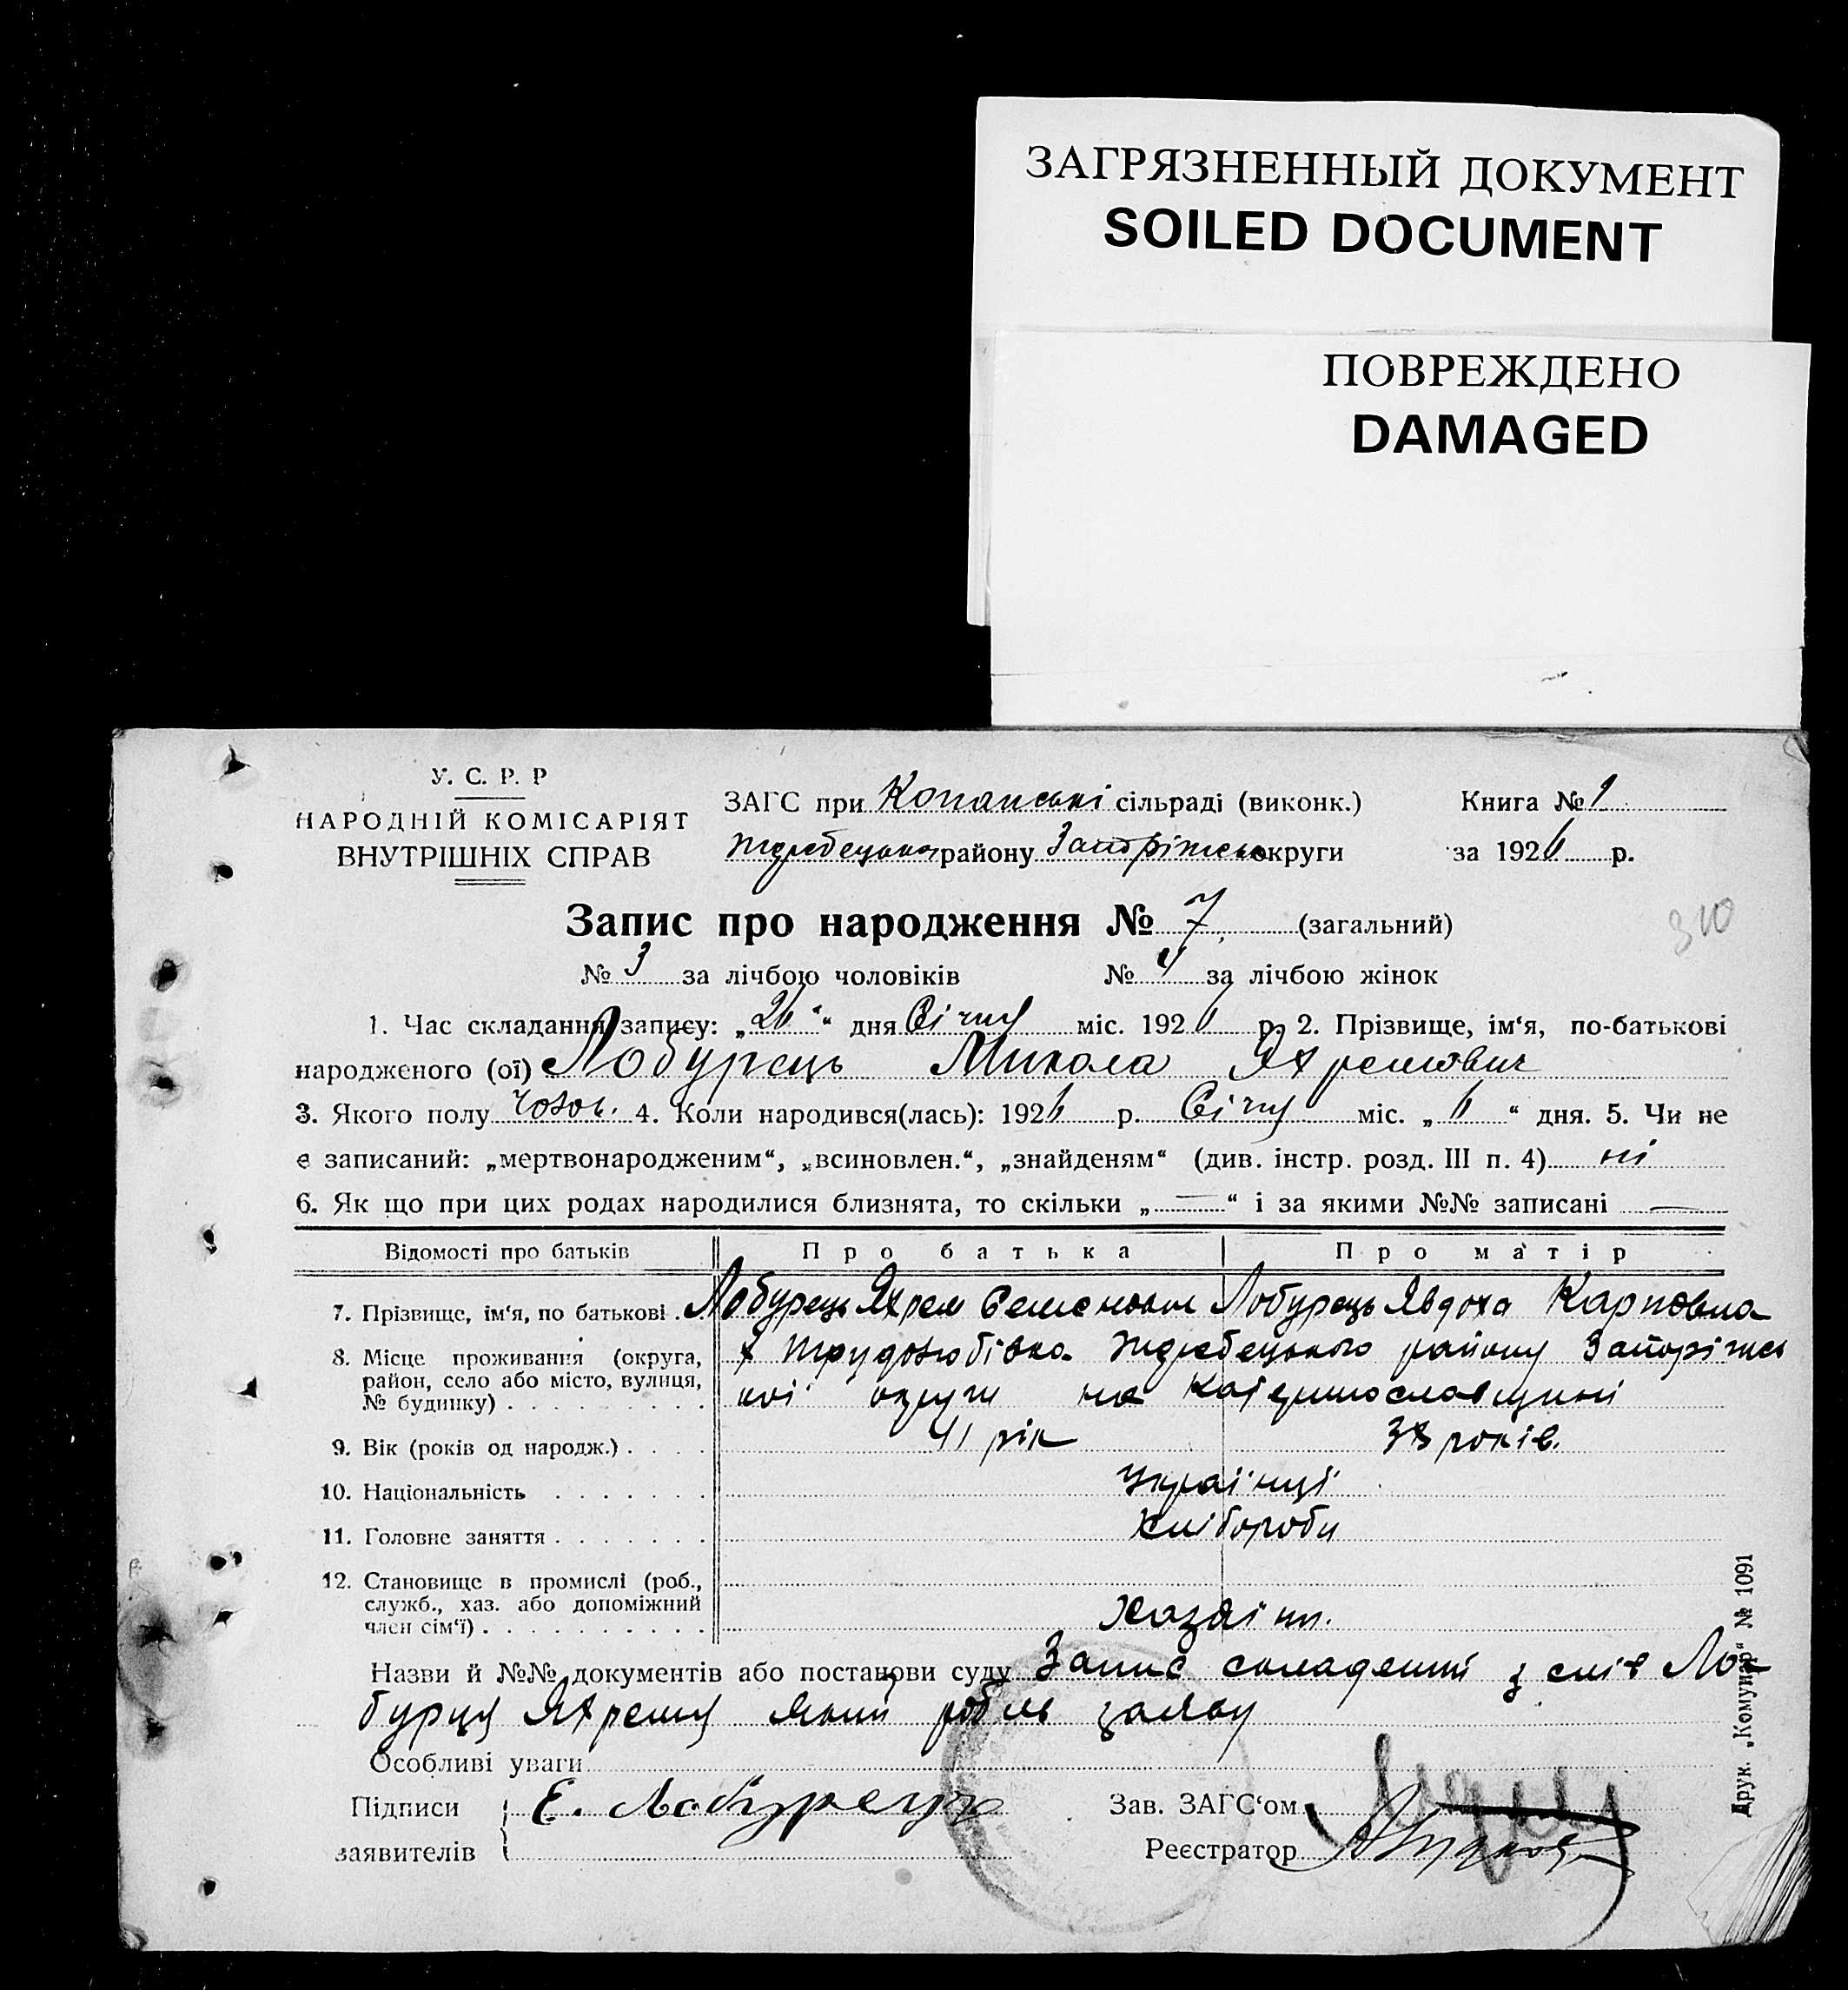 ЗАГРЯЗНЕННЫЙ ДОКУМЕНТ
SOILED DOCUMENT
ПОВРЕЖДЕНО
DAMAGED
У. С. Р. Р
НАРОДНІЙ КОМІСАРІЯТ
ВНУТРІШНІХ СПРАВ
ЗАГС при Копанські сільраді (виконк.)
Жеребецьког району Запоріжсько округи
Книга № 1
за 1926 р.
Запис про народження № 7 (загальний)
310
№ 3 за лічбою чоловіків № 4 за лічбою жінок
1. Час складання запису: „26“ дня Січня міс. 1926 р. 2. Прізвище, ім‘я, по-батькові
народженого (ої) Лобурець Микола Яхремович
3. Якого полу чолов. 4. Коли народився(лась): 1926 р. Січня міс. „6“ дня. 5. Чи не
є записаний: „мертвонародженим“, „всиновлен.“, „знайденям“ (див. інстр. розд. III п. 4) ні
6. Як що при цих родах народилися близнята, то скільки „—“ і за якими №№ записані —
Відомості про батьків Про батька Про матір
7. Прізвище, ім‘я, по батькові Лобурець Яхрем Семенович Лобурець Явдоха Карповна
8. Місце проживання (округа, район, село або місто, вулиця, № будинку) х Трудолюбівка Жеребецького району Запоріжсь
кої округи на Катеринославщині
9. Вік (років од народж.) 41 рік 38 років.
10. Національність Українці
11. Головне заняття Хлібороби
12. Становище в промислі (роб., служб., хаз. або допоміжний член сім‘ї) Хазяїни.
Назви й №№ документів або постанови суду Запис складений з слів Ло-
бурця Яхрема який робив заяву
Особливі уваги
Підписи Е. Лобурець Зав. ЗАГС‘ом
заявителів Реєстратор
Друк. „Комунар“ № 1091